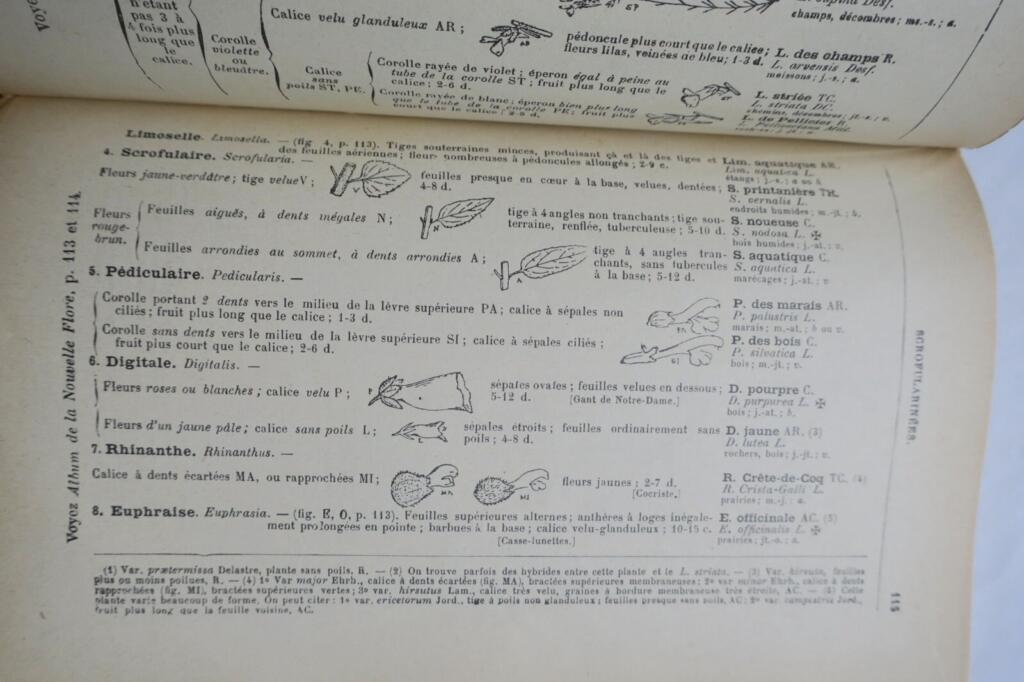 Voye
n'étant
pas 3 à
4 fois plus
long que
le
calice.
Corolle
violette
ou
bleuâtre.
Calice velu glanduleux AR;
champs, décombres; ms.-s.; a.
pédoncule plus court que le calice;
fleurs lilas, veinées de bleu; 1-3 d.
L. des champs R.
L. arvensis Desf.
moissons; j.-s.; a.
Calice
sans
poils ST, PE.
Corolle rayée de violet; éperon égal à peine au
tube de la corolle ST; fruit plus long que le
calice; 2-6 d.
L. striée TC.
L. striata DC.
chemins, décombres; jt.-s.; v.
Corolle rayée de blanc; éperon bien plus long
que le tube de la corolle PE; fruit plus
court que le calice; 2-8 d.
L. de Pellicier R.
Limoselle. Limosella. — (fig. 4, p. 113). Tiges souterraines minces, produisant çà et là des tiges et
des feuilles aériennes; fleurs nombreuses à pédoncules allongés; 2-9 c.
Lim. aquatique AR.
Lim. aquatica L.
4. Scrofulaire. Scrofularia. —
Fleurs jaune-verdâtre; tige velue V;
feuilles presque en cœur à la base, velues, dentées;
4-8 d.
S. printanière TR.
S. vernalis L.
endroits humides; m.-jt.; b.
Fleurs
rouge-
brun.
Feuilles aiguës, à dents inégales N;
N
tige à 4 angles non tranchants; tige sou-
terraine, renflée, tuberculeuse; 5-10 d.
S. noueuse C.
S. nodosa L. ✠
bois humides; j.-at.; v.
Feuilles arrondies au sommet, à dents arrondies A;
A
tige à 4 angles tran-
chants, sans tubercules
à la base; 5-12 d.
S. aquatique C.
S. aquatica L.
marécages; j.-at.; v
5. Pédiculaire. Pedicularis. —
Corolle portant 2 dents vers le milieu de la lèvre supérieure PA; calice à sépales non
ciliés; fruit plus long que le calice; 1-3 d.
PA
P. des marais AR.
P. palustris L.
marais; m.-at.; b ou v.
Corolle sans dents vers le milieu de la lèvre supérieure SI; calice à sépales ciliés;
fruit plus court que le calice; 2-6 d.
SI
P. des bois C.
P. silvatica L.
bois; m.-jt.; v.
6. Digitale. Digitalis. —
Fleurs roses ou blanches; calice velu P;
P
sépales ovales; feuilles velues en dessous;
5-12 d. [Gant de Notre-Dame.]
D. pourpre C.
D. purpurea L. ✠
bois; j.-at.; b.
Fleurs d'un jaune pâle; calice sans poils L;
L
sépales étroits; feuilles ordinairement sans
poils; 4-8 d.
D. jaune AR. (3)
D. lutea L.
rochers, bois; j.-jt.; v.
7. Rhinanthe. Rhinanthus. —
Calice à dents écartées MA, ou rapprochées MI;
MA
MI
fleurs jaunes; 2-7 d.
[Cocriste.]
R. Crête-de-Coq TC. (4)
R. Crista-Galli L.
prairies; m.-j.; a.
8. Euphraise. Euphrasia. — (fig. E, O, p. 113). Feuilles supérieures alternes; anthères à loges inégale-
ment prolongées en pointe; barbues à la base; calice velu-glanduleux; 10-15 c.
[Casse-lunettes.]
E. officinale AC. (5)
E. officinalis L. ✠
prairies; jt.-o.; a.
(1) Var. prætermissa Delastre, plante sans poils, R. — (2) On trouve parfois des hybrides entre cette plante et le L. striata. — (3) Var. hirsuta, feuilles
plus ou moins poilues, R. — (4) 1° Var major Ehrh., calice à dents écartées (fig. MA), bractées supérieures membraneuses; 2° var minor Ehrh., calice à dents
rapprochées (fig. MI), bractées supérieures vertes; 3° var. hirsutus Lam., calice très velu, graines à bordure membraneuse très étroite, AC. — (5) Cette
plante varie beaucoup de forme. On peut citer: 1° var. ericetorum Jord., tige à poils non glanduleux; feuilles presque sans poils, AC; 2° var. campestris Jord.,
fruit plus long que la feuille voisine, AC.
Voyez Album de la Nouvelle Flore, p. 113 et 114.
SCROFULARINÉES.
115